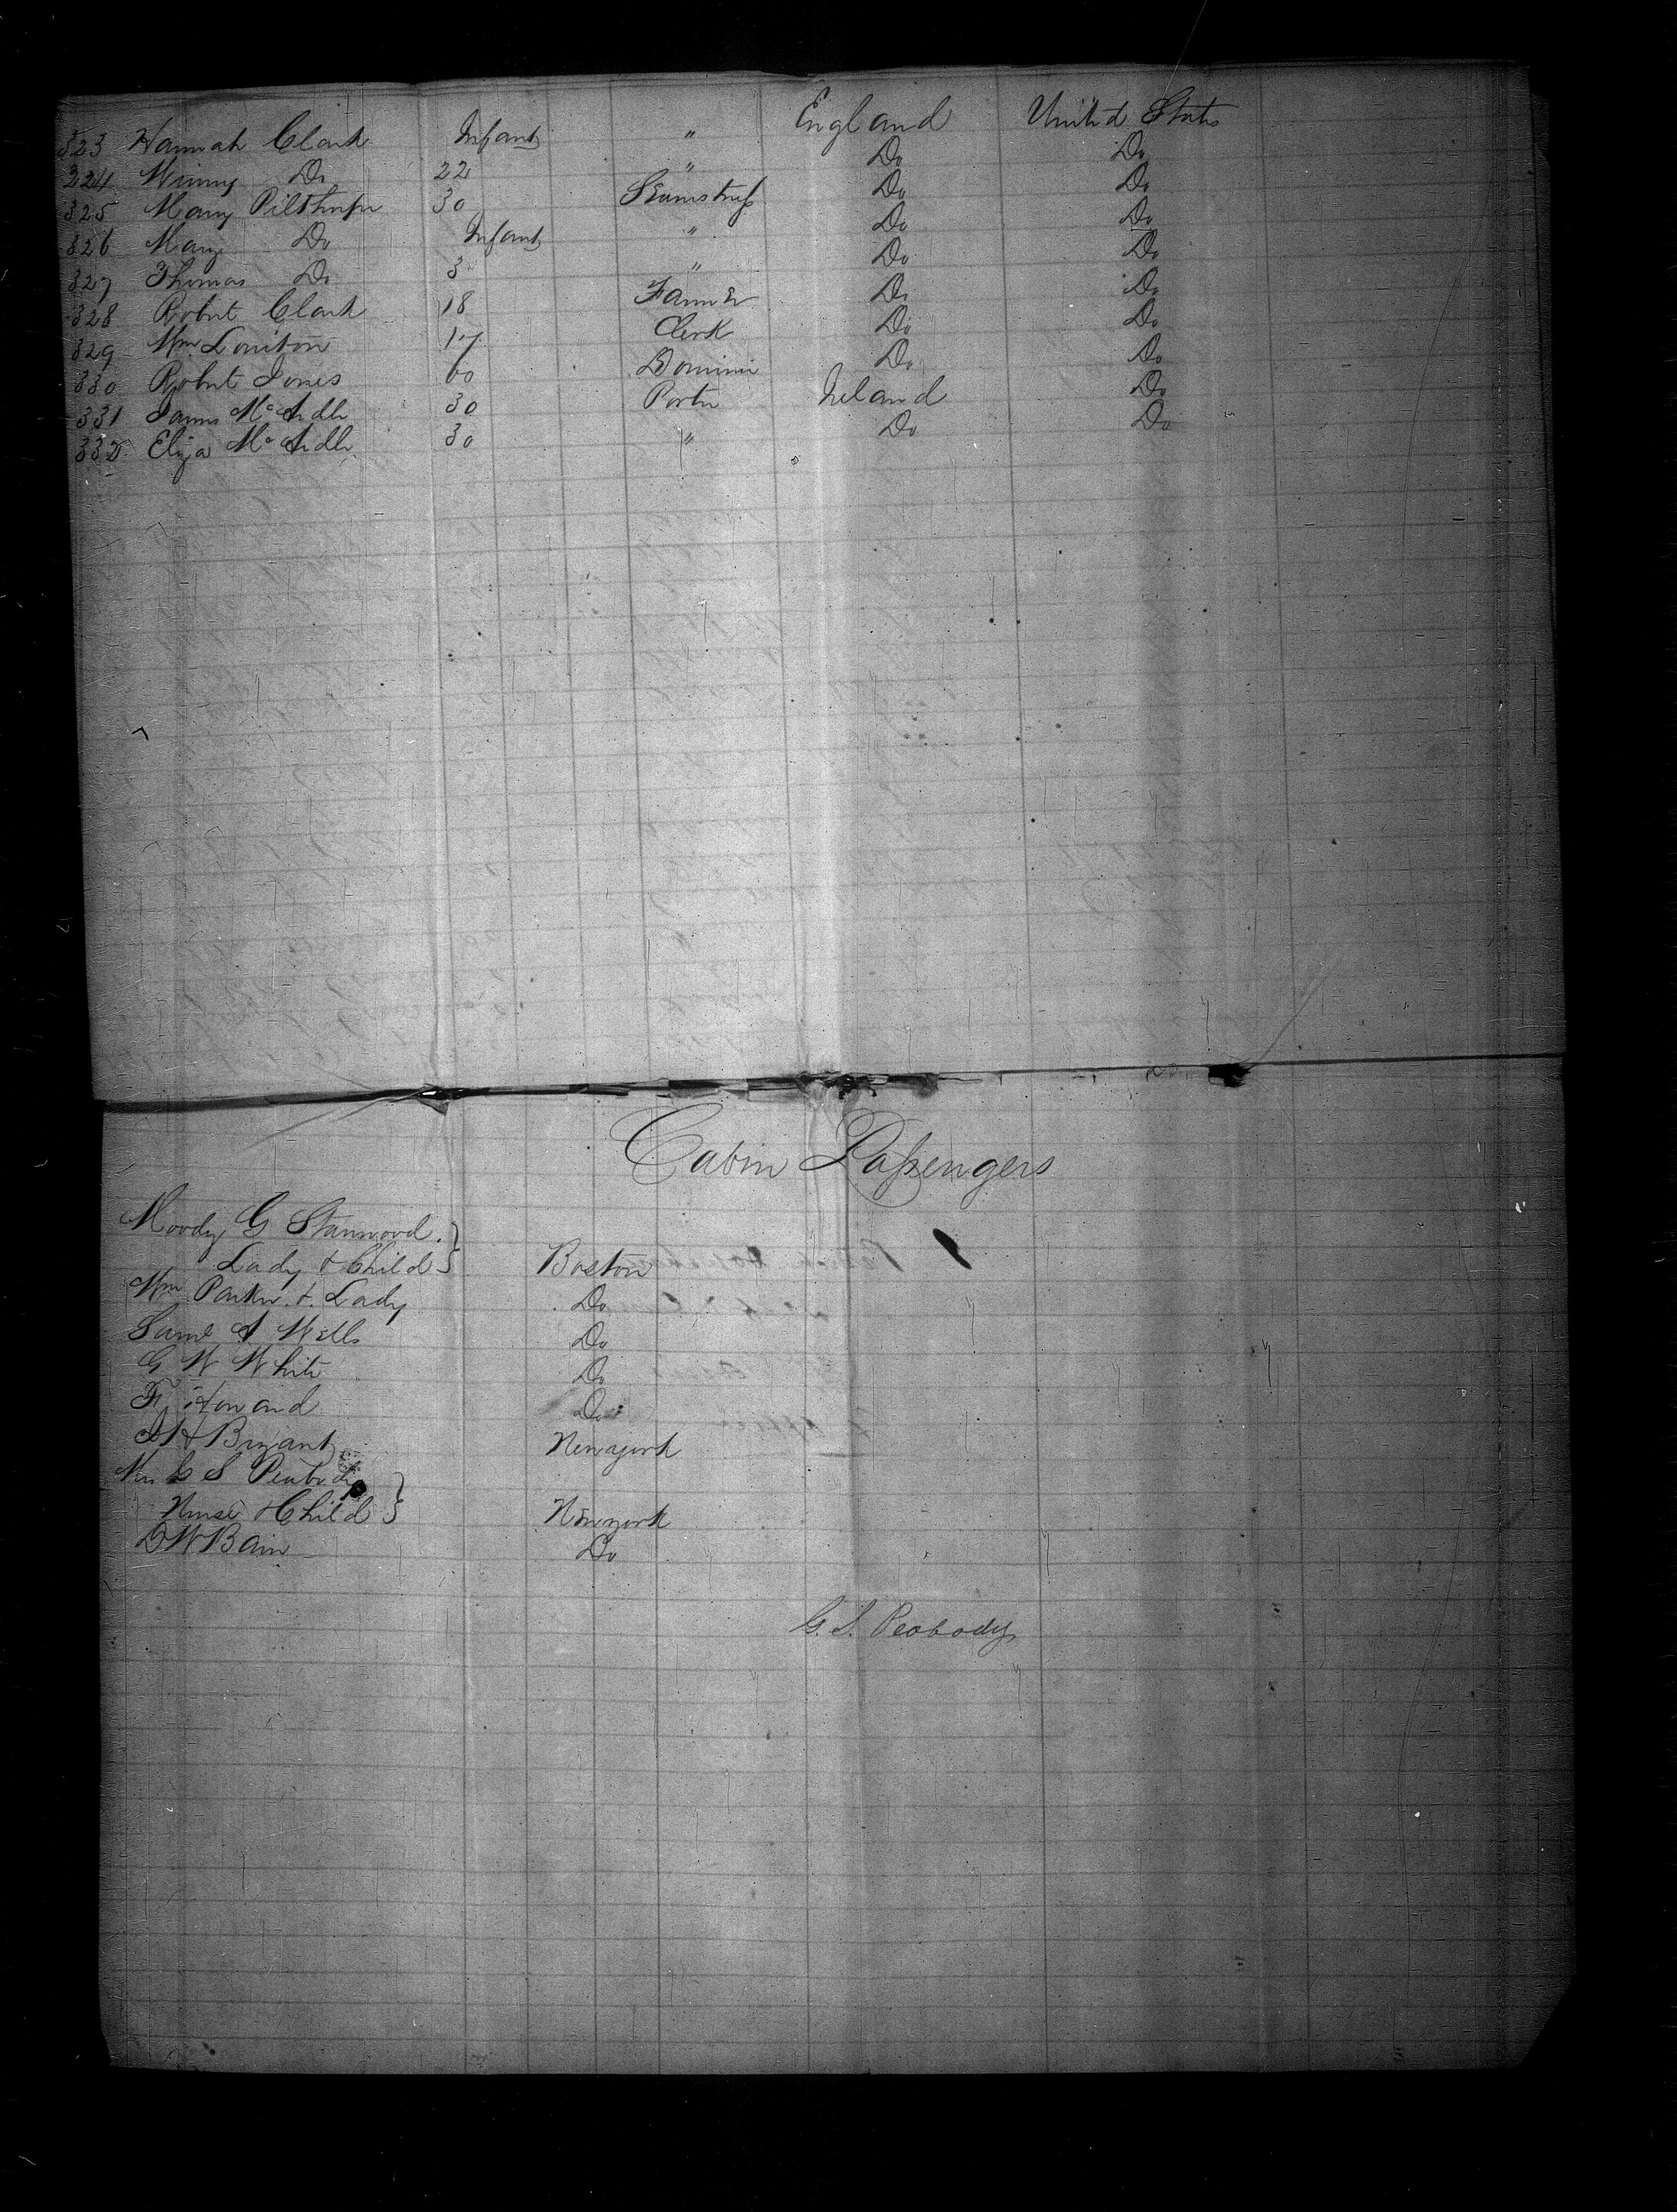 323 Hannah Clark Infant " England United States
324 Winny Do 22 " Do Do
325 Mary Pilthorpe 30 Seamstress Do Do
326 Mary Do Infant " Do Do
327 Thomas Do 3 " Do Do
328 Robert Clark 18 Farmer Do Do
329 Wm 17 Clerk Do Do
330 Robert Jones 60 Do Do
331 James McArdle 30 Porter Ireland Do
332 Eliza McArdle 30 " Do Do
Cabin Passengers
Moody G Stanwood
Lady & Child Boston
Wm Parker & Lady Do
Saml A Wells Do
G W White Do
F Howard Do
Bryant Newyork
Mrs G S Peabody
Nurse & Child Newyork
D W Bain Do
G. S. Peabody